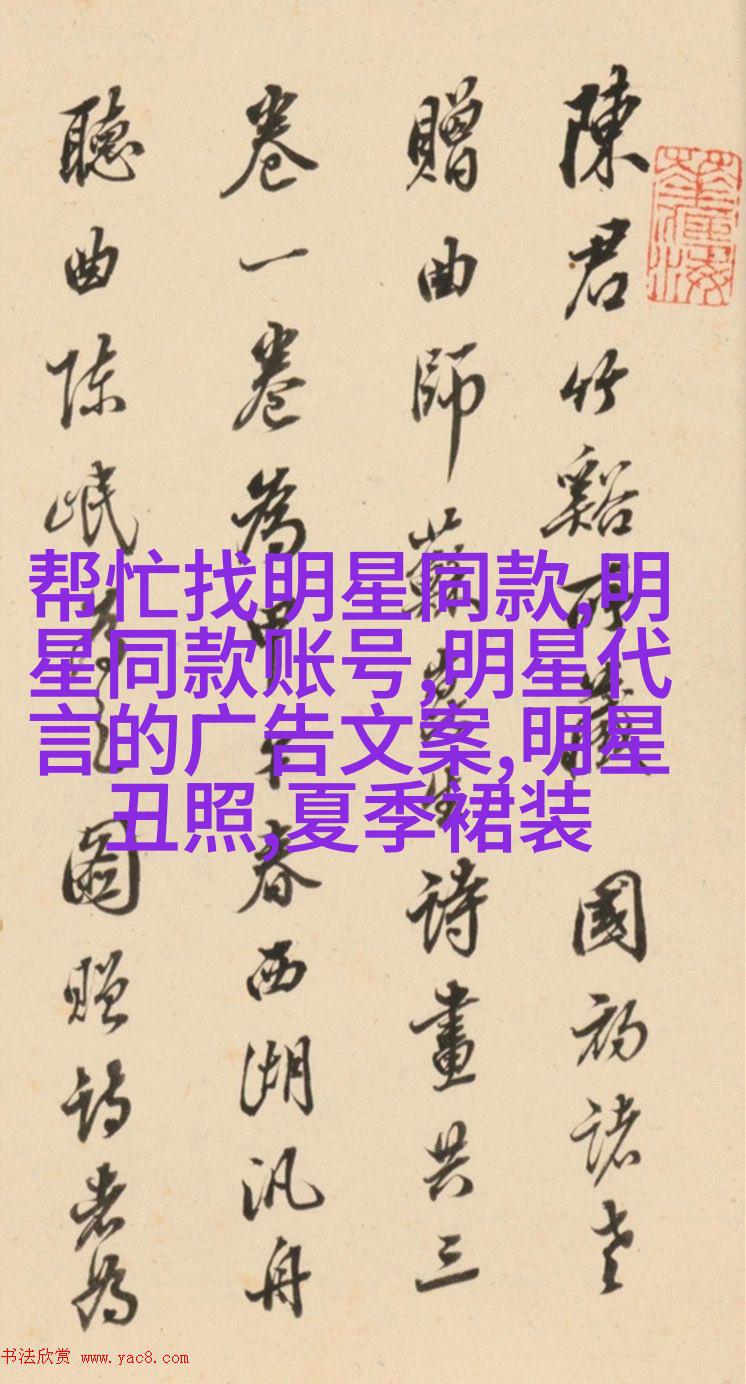 陳君竹谿所藏 國初諸老
贈曲師蘇崑生詩畫共三
卷一卷為甲午春西湖汎舟
聽曲陳岷圖贈詩者為
帮忙找明星同款,明
星同款账号,明星代
言的广告文案,明星
丑照,夏季裙装
书法欣赏 www.yac8.com